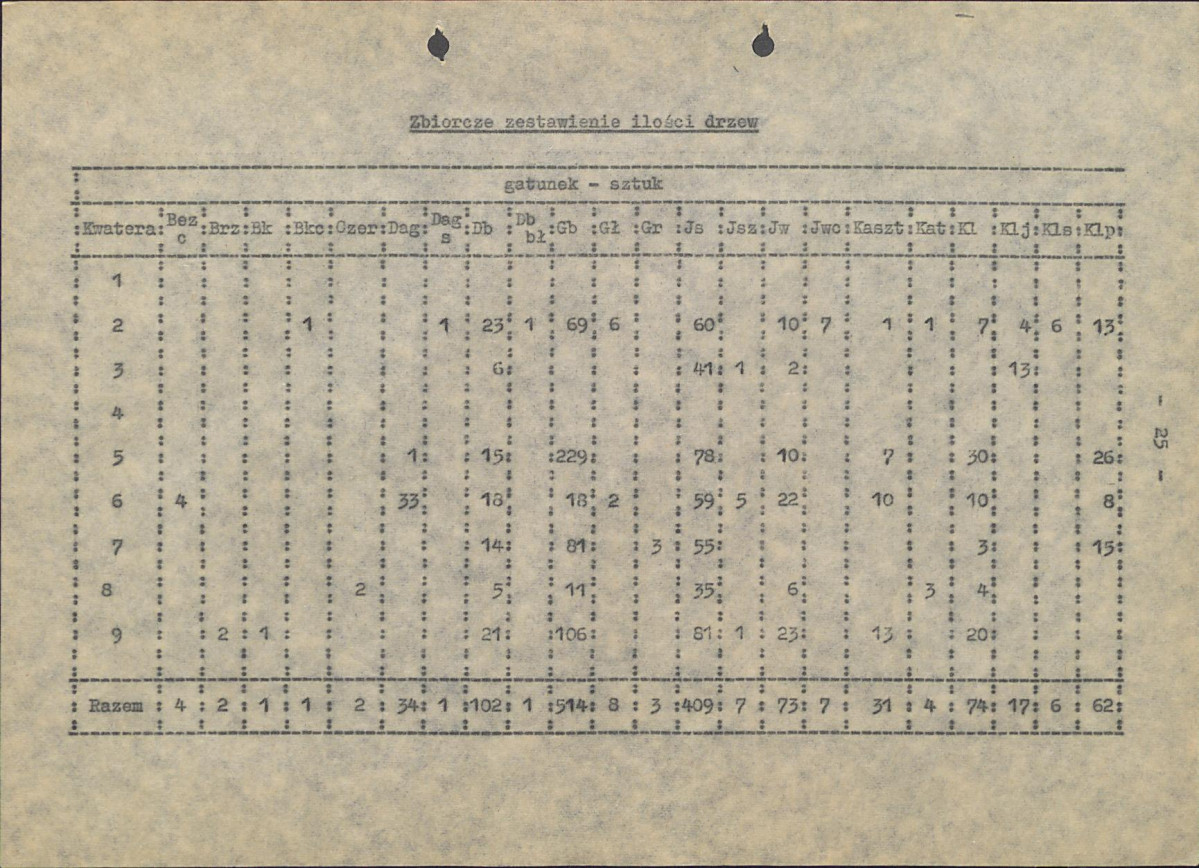 Zbiorcze zestawienie ilości drzew
gatunek - sztuk
Kwatera Bez c Brz Bk Bkc Czer Dag Dag s Db Db bł Gb Gł Gr Js Jsz Jw Jwc Kaszt Kat Kl Klj Kls Klp
1
2 1 1 23 1 69 6 60 10 7 1 1 7 4 6 13
3 6 41 1 2 13
4
5 1 15 229 78 10 7 30 26
6 4 33 18 18 2 59 5 22 10 10 8
7 14 81 3 55 3 15
8 2 5 11 35 6 3 4
9 2 1 21 106 81 1 23 13 20
Razem 4 2 1 1 2 34 1 102 1 514 8 3 409 7 73 7 31 4 74 17 6 62
- 25 -